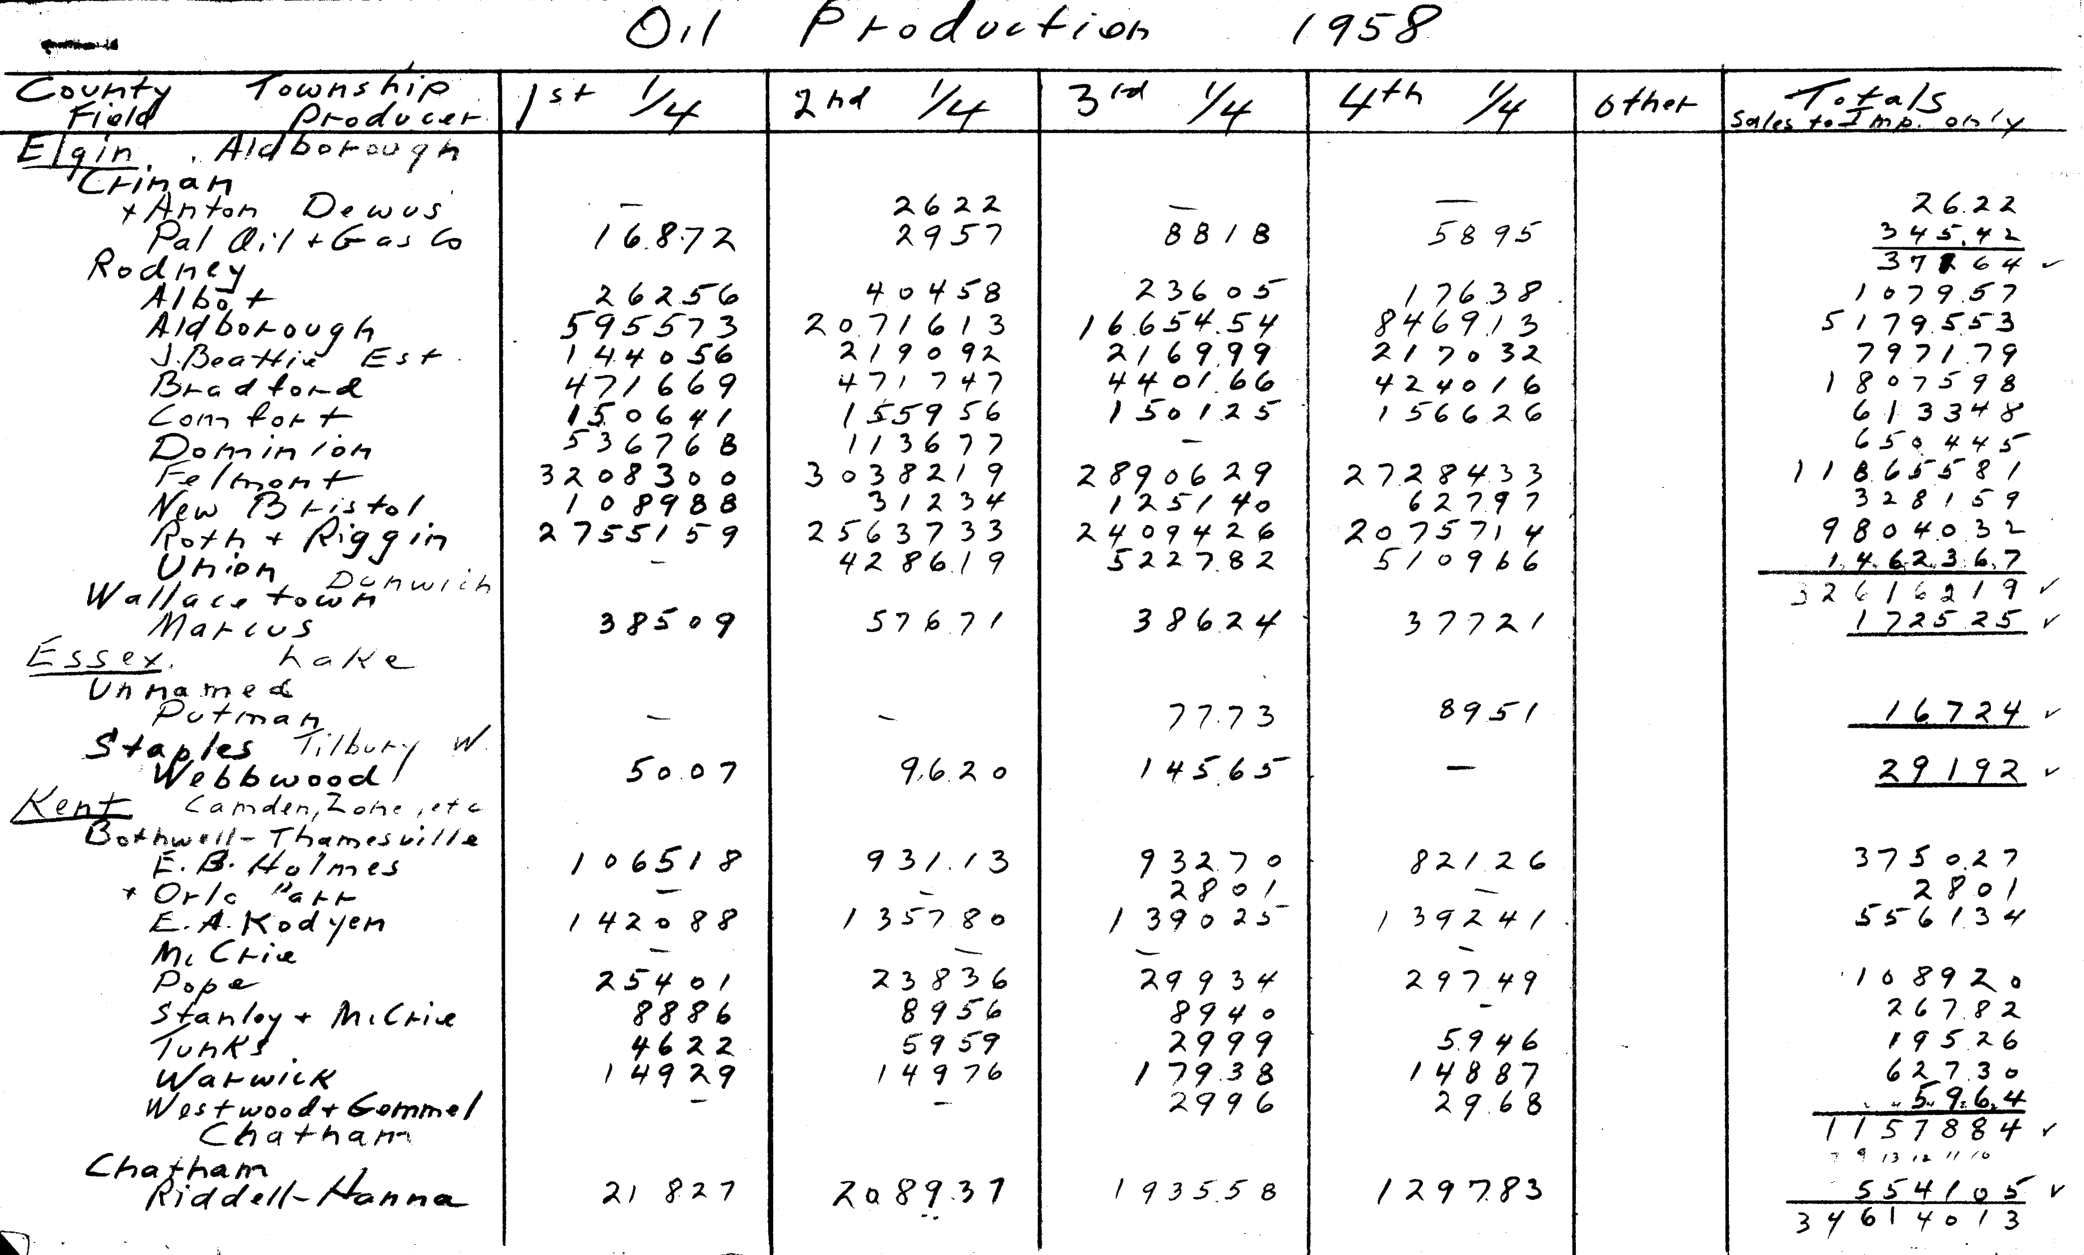 Oil Production 1958
County Township 1st 1/4 2nd 1/4 3rd 1/4 4th 1/4 other Totals
Field Producer Sales to Imp. only
Elgin Aldborough
Crinan
+ Anton Dewus — 2622 — — 26.22
Pal Oil + Gas Co 16.8.72 2957 8818 5895 345.42
37164 ✓
Rodney
Albot 26256 40458 23605 17638 107957
Aldborough 595573 2071613 16.654.54 846913 5179553
J. Beattie Est. 144056 219092 216999 217032 797179
Bradford 471669 471747 440166 424016 1807598
Comfort 150641 155956 150125 156626 613348
Dominion 536768 113677 — 650445
Felmont 3208300 3038219 2890629 2728433 11865581
New Bristol 108988 31234 125140 62797 328159
Roth + Riggin 2755159 2563733 2409426 2075714 9804032
Union — 428619 522782 510966 1462367
32616219 ✓
Wallacetown Dunwich
Marcus 38509 57671 38624 37721 172525 ✓
Essex. Lake
Unnamed
Putman — — 77.73 8951 16724 ✓
Staples Tilbury W.
Webbwood 50.07 9.6.20 145.65 — 29192 ✓
Kent Camden, Zone, etc
Bothwell-Thamesville
E. B. Holmes 106518 931.13 93270 82126 375027
+ Orlo Parr — — 2801 — 2801
E. A. Kodyen 142088 135780 139025 139241 556134
McCrie — — — —
Pope 25401 23836 29934 29749 108920
Stanley + McCrie 8886 8956 8940 — 26782
Tunks 4622 5959 2999 5946 19526
Warwick 14929 14976 17938 14887 62730
Westwood + Gommel — — 2996 29.68 5964
Chatham 1157884 ✓
7 9 13 12 11 10
Chatham
Riddell-Hanna 21827 208937 193558 129783 554105 ✓
34614013